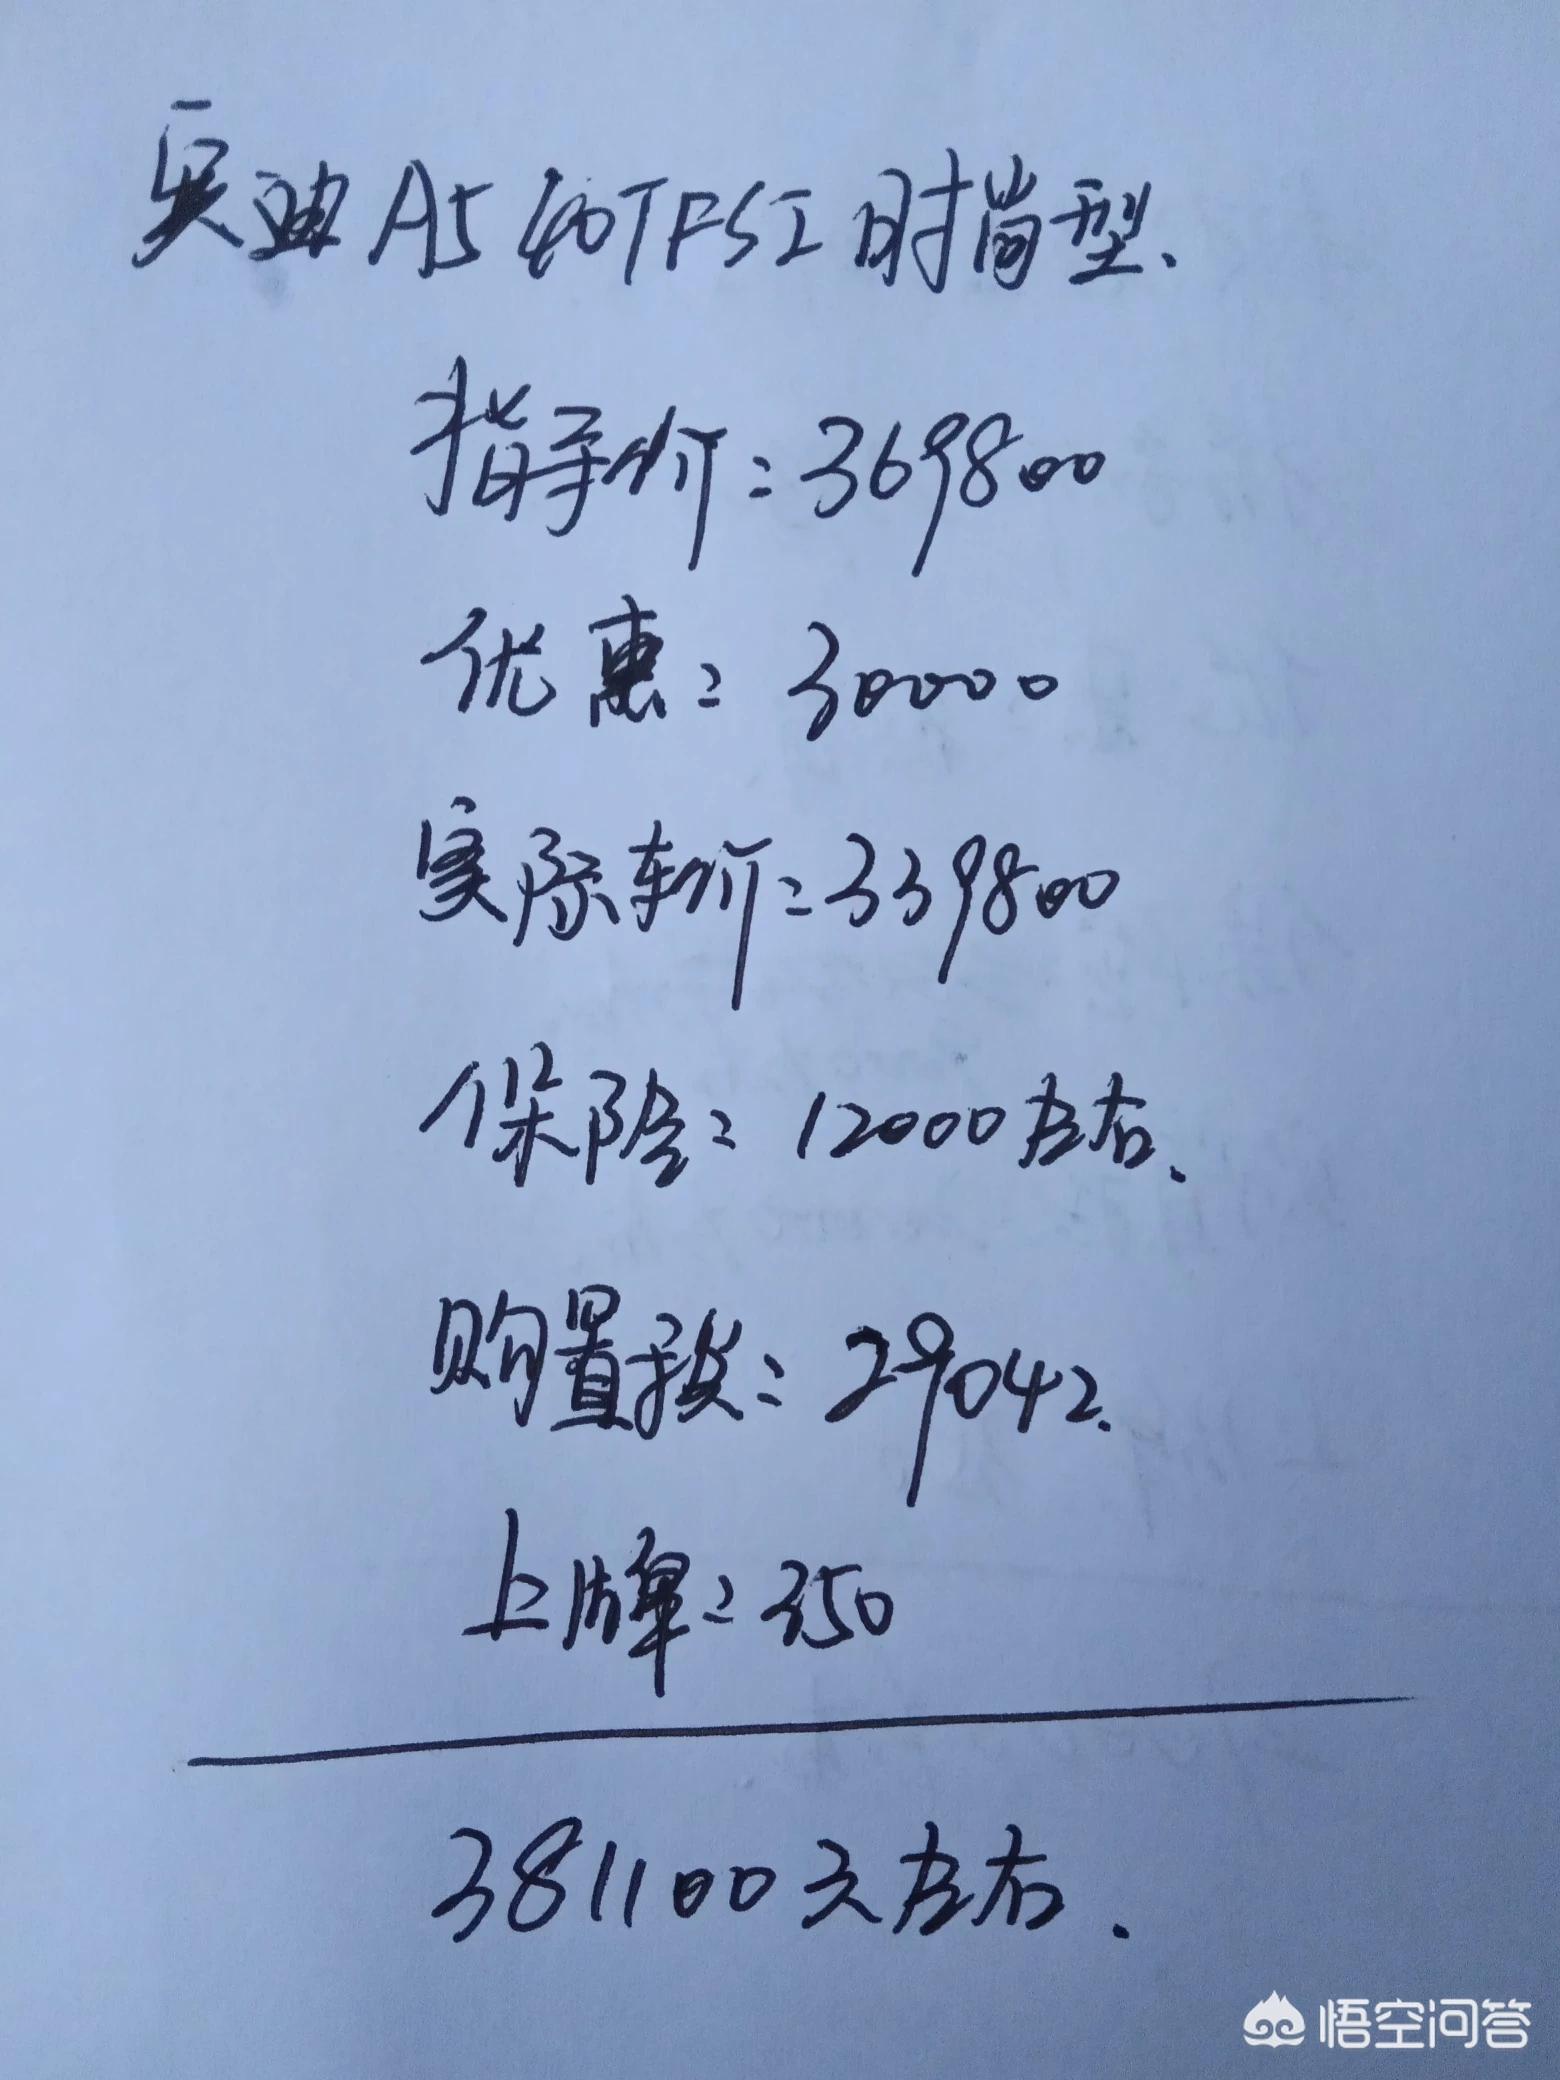 奥迪A5 40TFSI时尚型.
指导价:369800
优惠:30000
实际车价:339800
保险:12000左右.
购置税:29042.
上牌:350
381100元左右.
悟空问答